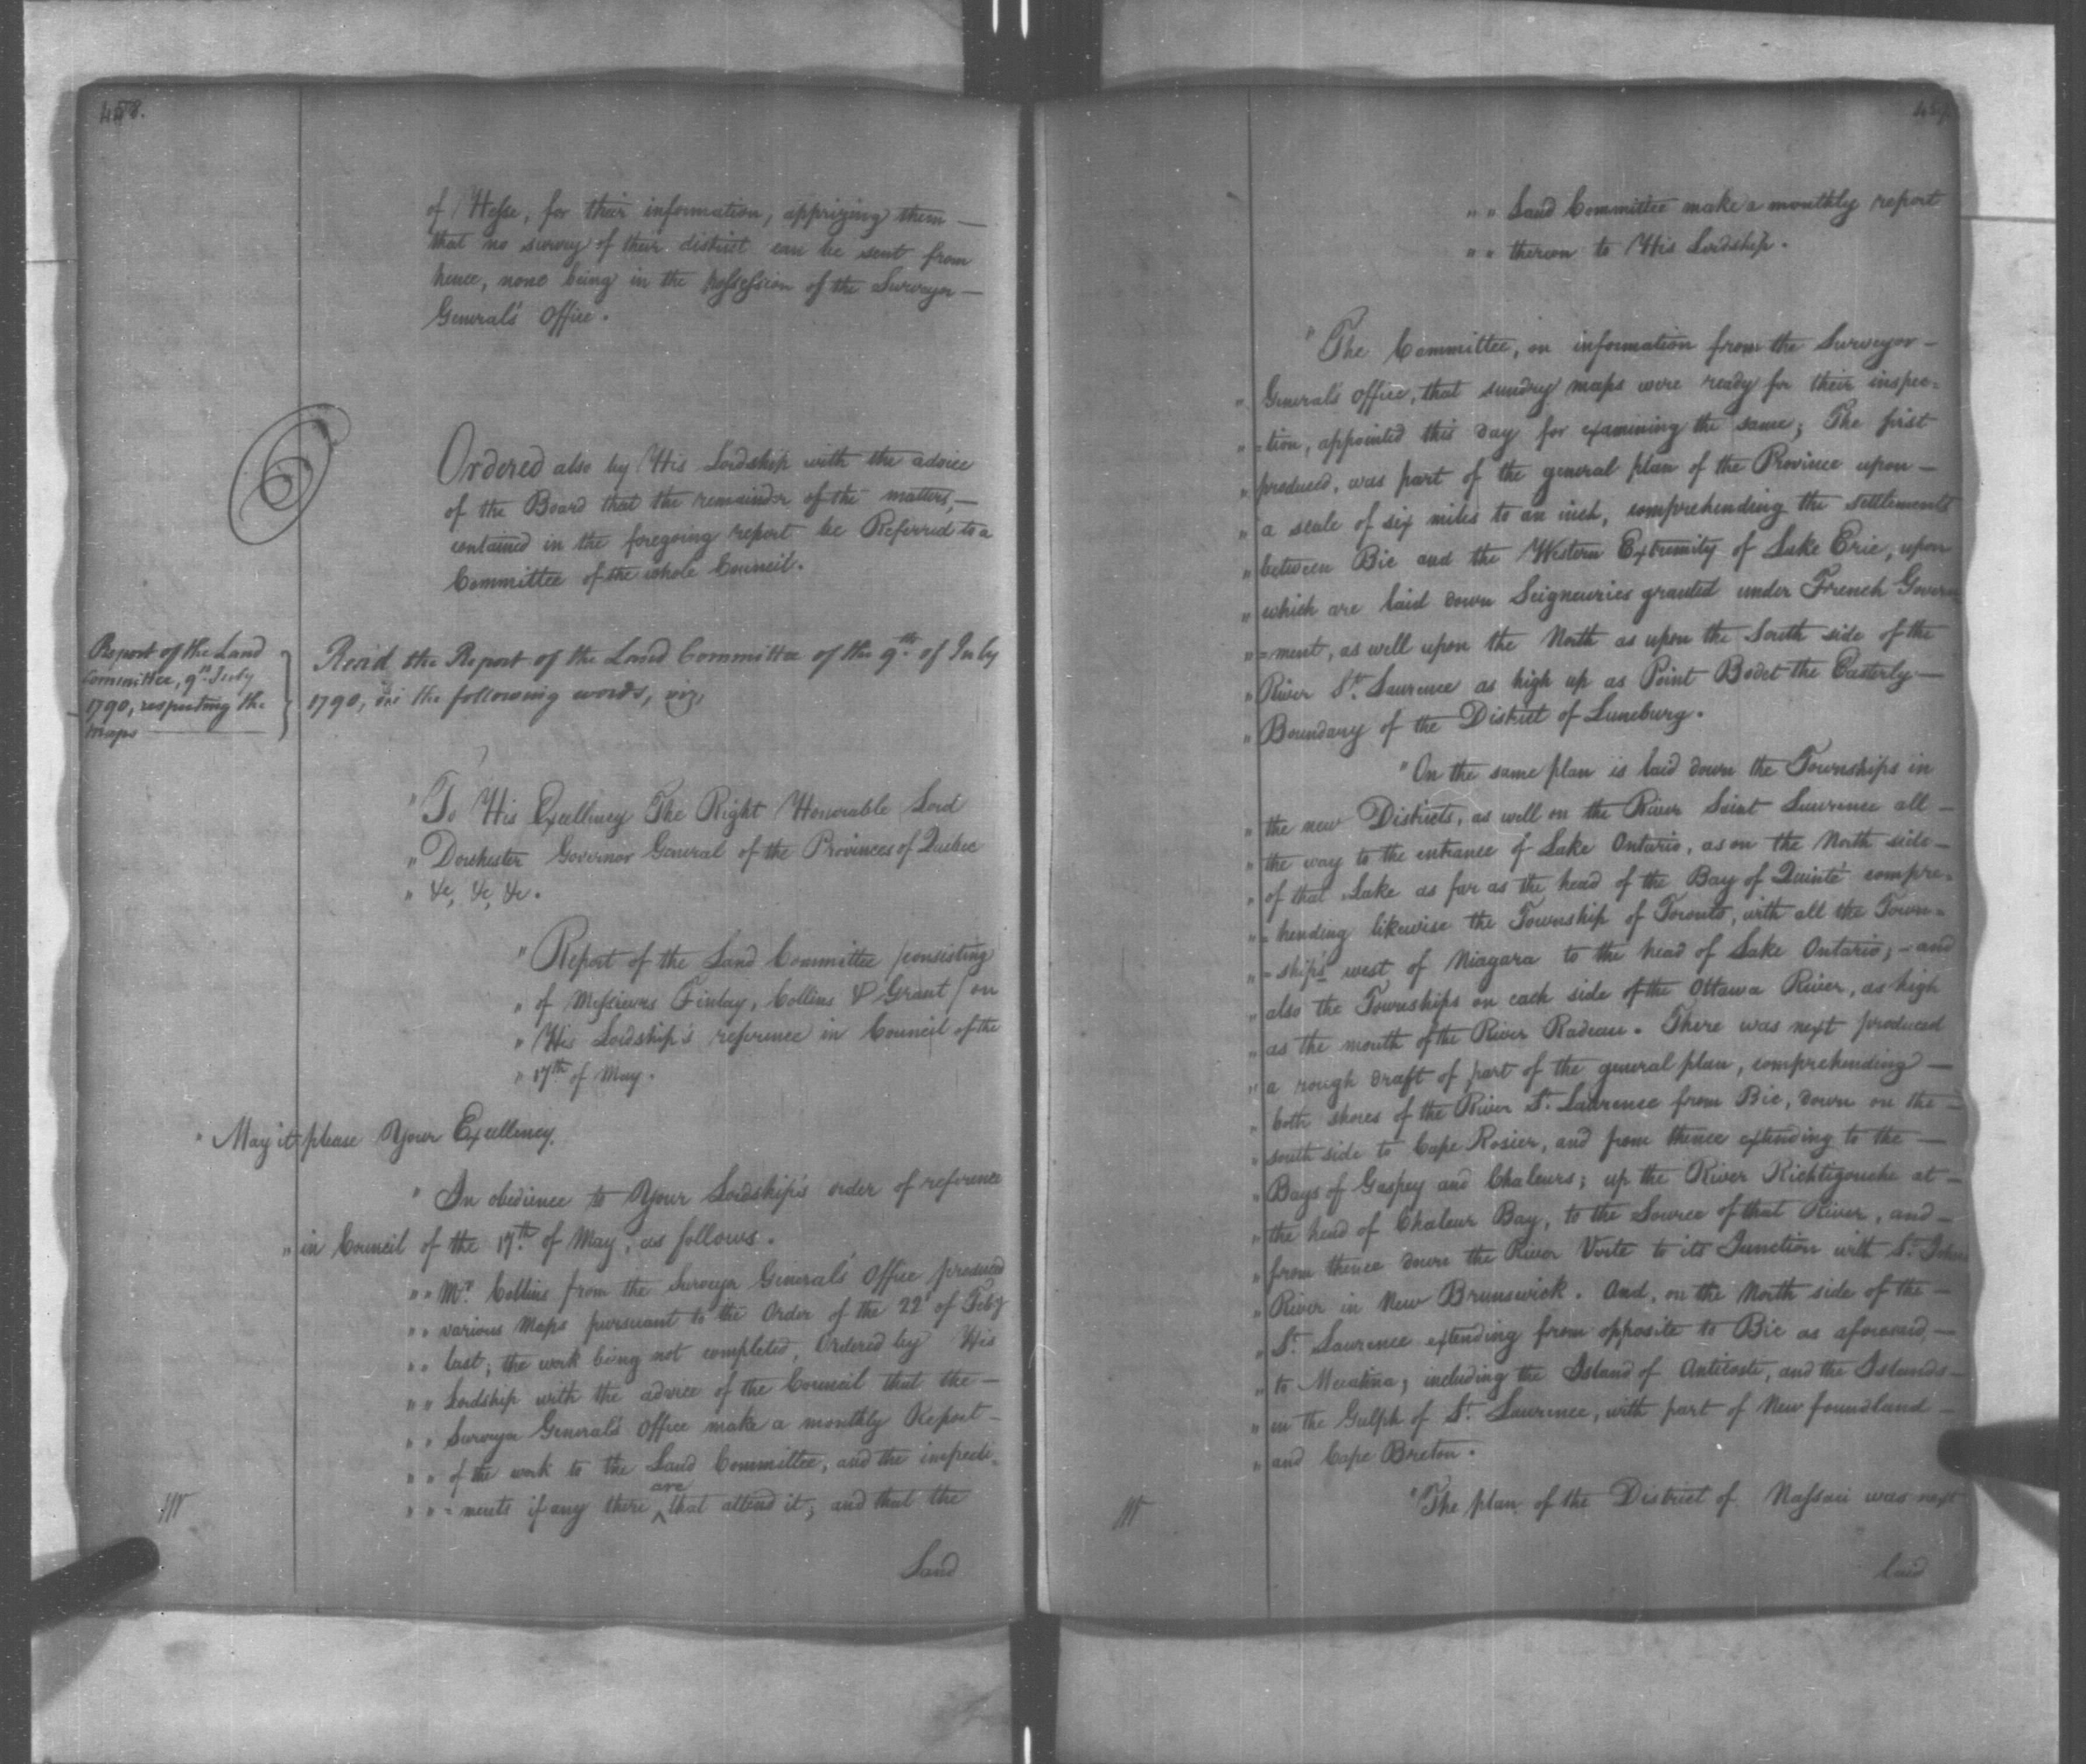 458.
of Hesse, for their information, apprizing them —
that no survey of their district can be sent from
hence, none being in the possession of the Surveyor —
General's Office.
6
Ordered also by His Lordship with the advice
of the Board that the remainder of the matters, —
contained in the foregoing report be Referred to a
Committee of the whole Council.
Report of the Land
Committee, 9th July
1790, respecting the
Maps
Read the Report of the Land Committee of the 9th of July
1790, in the following words, viz,
" To His Excellency The Right Honorable Lord
" Dorchester Governor General of the Provinces of Quebec
" &c, &c, &c.
" Report of the Land Committee /consisting
" of Messieurs Finlay, Collins & Grant/ on
" His Lordship's reference in Council of the
" 17th of May.
" May it please Your Excellency.
" In obedience to Your Lordship's order of reference
" in Council of the 17th of May, as follows.
" " Mr. Collins from the Surveyor General's Office produced
" " various Maps pursuant to the Order of the 22d of Feby
" " last; the work being not completed, Ordered by His
" " Lordship with the advice of the Council that the —
" " Surveyor General's Office make a monthly Report —
" " of the work to the Land Committee, and the impedi=
" " =ments if any there ^are that attend it; and that the
Land
459.
" " Land Committee make a monthly report
" " thereon to His Lordship.
" The Committee, on information from the Surveyor —
" General's Office, that sundry maps were ready for their inspec=
" =tion, appointed this day for examining the same; The first
" produced, was part of the general plan of the Province upon —
" a scale of six miles to an inch, comprehending the settlements
" between Bic and the Western Extremity of Lake Erie, upon
" which are laid down Seigneuries granted under French Govern
" =ment, as well upon the North as upon the South side of the
" River St. Laurence as high up as Point Bodet the Easterly —
" Boundary of the District of Luneburg.
" On the same plan is laid down the Townships in
" the new Districts, as well on the River Saint Laurence all —
" the way to the entrance of Lake Ontario, as on the North side —
" of that Lake as far as the head of the Bay of Quinté compre=
" =hending likewise the Township of Toronto, with all the Town=
" =ships west of Niagara to the head of Lake Ontario; — and
" also the Townships on each side of the Ottawa River, as high
" as the mouth of the River Radeau. There was next produced
" a rough draft of part of the general plan, comprehending —
" both shores of the River St. Laurence from Bic, down on the —
" south side to Cape Rosier, and from thence extending to the —
" Bays of Gaspey and Chaleurs; up the River Richtigouche at —
" the head of Chaleur Bay, to the Source of that River, and —
" from thence down the River Verte to its Junction with St. Johns
" River in New Brunswick. And, on the North side of the —
" St. Laurence extending from opposite to Bic as aforesaid, —
" to Mecatina; including the Island of Anticoste, and the Islands —
" in the Gulph of St. Laurence, with part of New foundland —
" and Cape Breton.
" The plan of the District of Nassau was next
laid